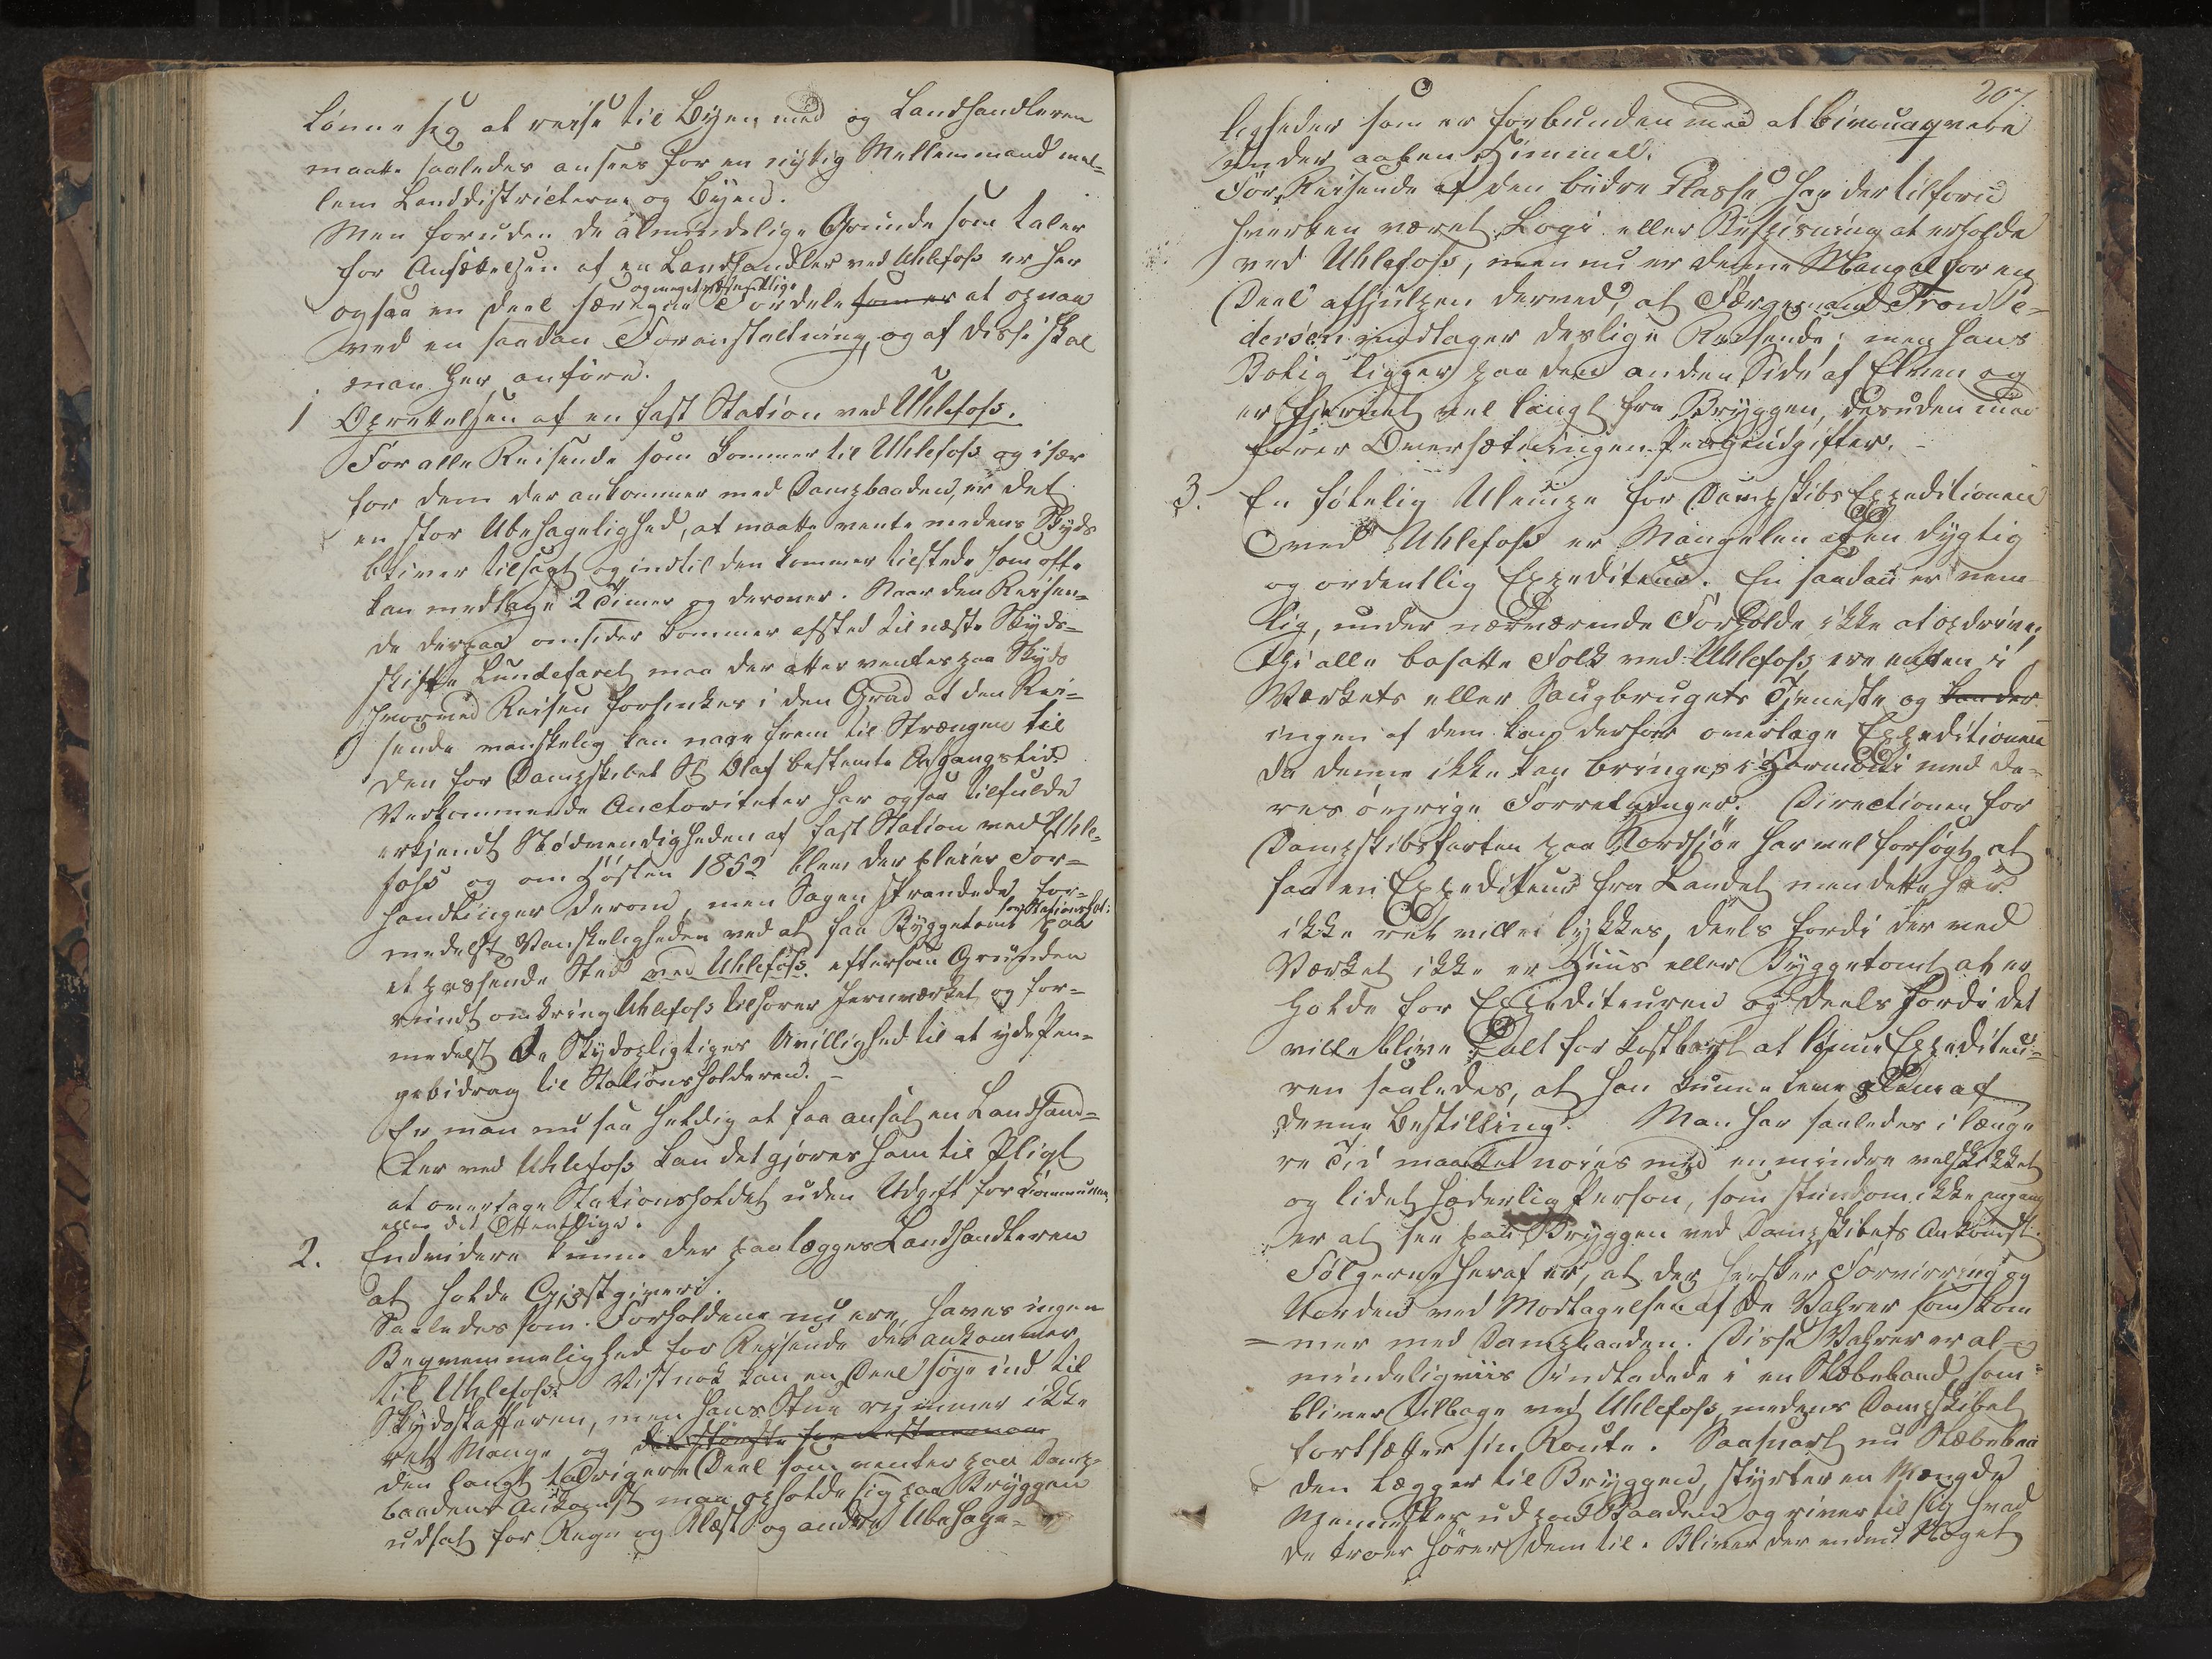 lønne sig at reise til Byen med og Landhandleren
maatte saaledes ansees for en nyttig Mellemmand mel=
lem Landdistricterne og Byen.
Men foruden de almindelige Grunde som taler
for Ansættelsen af en Landhandler ved Uhlefoss er her
og meget væsentlige
ogsaa en Deel særegne Fordele som er at opnaa
ved en saadan Foranstaltning, og af disse skal
man her anføre.
1 Oprettelsen af en fast Station ved Uhlefoss.
For alle Reisende som kommer til Uhlefoss og især
for dem der ankommer med Dampbaaden, er det
en stor Ubehagelighed, at maatte vente medens Skyds
bliver tilsagt og indtil den kommer tilstede som ofte
kan medtage 2 Timer og derover. Naar den Reisen=
de derpaa omsider kommer afsted til næste Skyds=
skifte Lundefaret maa der atter ventes paa Skyds
hvorved Reisen forsinkes i den Grad at den Rei=
sende vanskelig kan naae frem til Strængen til
den for Dampskibet St Olaf bestemte Afgangstid.
Vedkommende Auctoriteter har ogsaa tilfulde
erkjendt Nødvendigheden af fast Station ved Uhle=
foss og om Høsten 1852 blev der pleiet For=
handlinger derom, men Sagen strandede for=
for Stationshol:
medelst Vanskeligheden ved at faa Byggetomt paa
et passende Sted ved Uhlefoss. eftersom Grunden
rundt omkring Uhlefoss tilhører Jernværket og for=
medelst de Skydspligtiges Uvillighed til at yde Pen=
gebidrag til Stationsholderen. –
Er man nu saa heldig at faa ansat en Landhand=
ler ved Uhlefoss kan det gjøres ham til Pligt
at overtage Stationsholdet uden Udgift for Kommunen
eller det Offentlige.
2. Endvidere kunne der paalægges Landhandleren
at holde Gjæstgiveri.
Saaledes som Forholdene nu ere, haves ingen
Beqvemmelighed for Reisende der ankommer
til Uhlefoss. Vistnok kan en Deel søge ind til
Skydsskafferen, men hans Stue rymmer ikke
ret Mange og
den langt talrigere Deel som venter paa Damp=
baadens Ankomst maa opholde sig paa Bryggen
udsat for Regn og Blæst og andre Ubehage=
207
ligheder som er forbunden med at bivouaqvere
under aaben Himmel.
For Reisende af den bedre Classe har der tilforn
hverken været Logi eller Bespisning at erholde
ved Uhlefoss, men nu er denne Mangel for en
Deel afhjulpen derved, at Færgemand Tron Pe=
dersen modtager deslige Reisende; men hans
Bolig ligger paa den anden Side af Elven og
er fjernet vel langt fra Bryggen, desuden med
fører Oversætningen Pengeudgifter. –
3. En følelig Ulempe for Dampskibs Expeditionen
ved Uhlefoss er Mangelen af en dygtig
og ordentlig Expediteur. En saadan er nem=
lig, under nærværende Forholde, ikke at opdrive,
thi alle bosatte Folk ved Uhlefoss ere enten i
Værkets eller Saugbrugets Tjeneste og kan der
ingen af dem kan derfor overtage Expeditionen
da denne ikke kan bringes i Harmoni med de=
res øvrige Forretninger. Directionen for
Dampskibsfarten paa Nordsjøe har vel forsøgt at
faa en Expediteur fra Landet men dette har
ikke ret villet lykkes, deels fordi der ved
Værket ikke er Huus eller Byggetomt at er
holde for Expediteuren og deels fordi det
ville blive alt for kostbart at lønne Expediteu=
ren saaledes, at han kunne leve alene af
denne Bestilling. Man har saaledes i længe
re Tid maattet nøies med en mindre velskikket
og lidet hæderlig Person, som stundom ikke engang
er at see paa Bryggen ved Dampskibets Ankomst.
Følgerne heraf er, at der hersker Forvirring og
Uorden ved Modtagelsen af de Vahrer som kom
= mer med Dampbaaden. Disse Vahrer er al=
mindeligviis indladede i en Slæbebaad, som
bliver tilbage ved Uhlefoss, medens Dampskibet
fortsætter sin Route. Saasnart nu Slæbebaa
den lægger til Bryggen, styrter en Mængde
Mennesker ud paa Baaden og river til sig hvad
de troer hører dem til. Bliver der endnu Noget